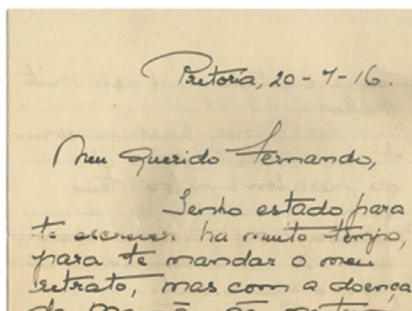 Pretoria, 20-7-16.
Meu Querido Fernando,
Tenho estado para
te escrever ha muito tempo,
para te mandar o meu
retrato, mas com a doença